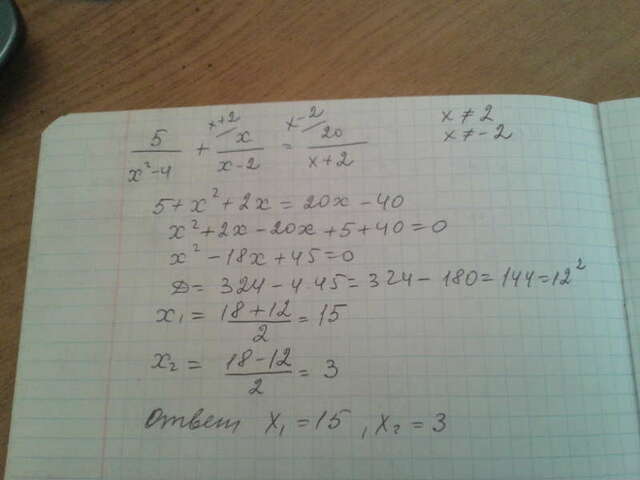 5/(x²-4) + x+2/ x/(x-2) = x-2/ 20/(x+2)    x ≠ 2
x ≠ -2
5+x²+2x=20x-40
x²+2x-20x+5+40=0
x²-18x+45=0
D= 324-4·45=324-180=144=12²
x₁= (18+12)/2=15
x₂= (18-12)/2=3
Ответ x₁=15, x₂=3